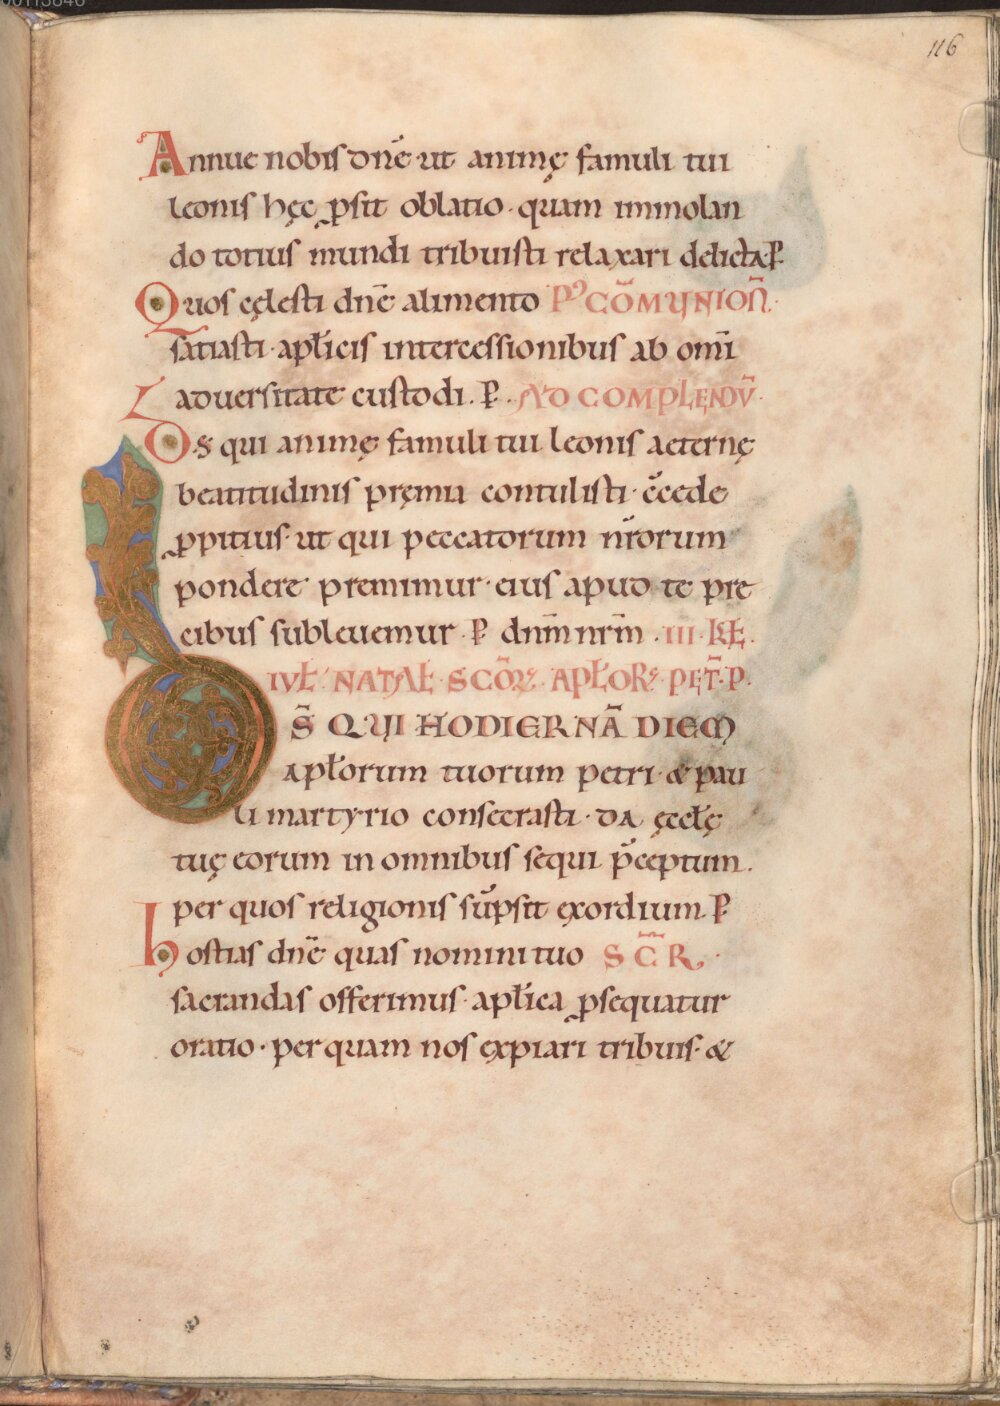 116
Annue nobis dnē ut animę famuli tui
leonis hęc ꝓsit oblatio · quam immolan
do totius mundi tribuisti relaxari delicta· P̄
Quos cęlesti dnē alimento P' CŌMUNIOÑ·
satiasti · apłicis intercessionibus ab omī
aduersitate custodi . P̄ . AD COMPLENDV̄ ·
D̄S qui animę famuli tui leonis aeternę
beatitudinis pręmia contulisti · c̄cede
ꝓpitius · ut qui peccatorum nr̄orum
pondere premimur · eius apud te pre
cibus subleuemur · P̄ dnm̄ nrm̄ · III · KŁ ·
IVŁ · NATAŁ · SCŌꝜ · APŁOꝜ · PET̄ · P ·
S̄ QUI HODIERNĀ DIEM
apłorum tuorum petri · & pau
li martyrio consecrasti · da ęccłę
tuę eorum in omnibus sequi p̄ceptum ·
per quos religionis sūpsit exordium · P̄
hostias dnē quas nomini tuo SC̄R ·
sacrandas offerimus · apłica ꝓsequatur
oratio · per quam nos expiari tribuis · &